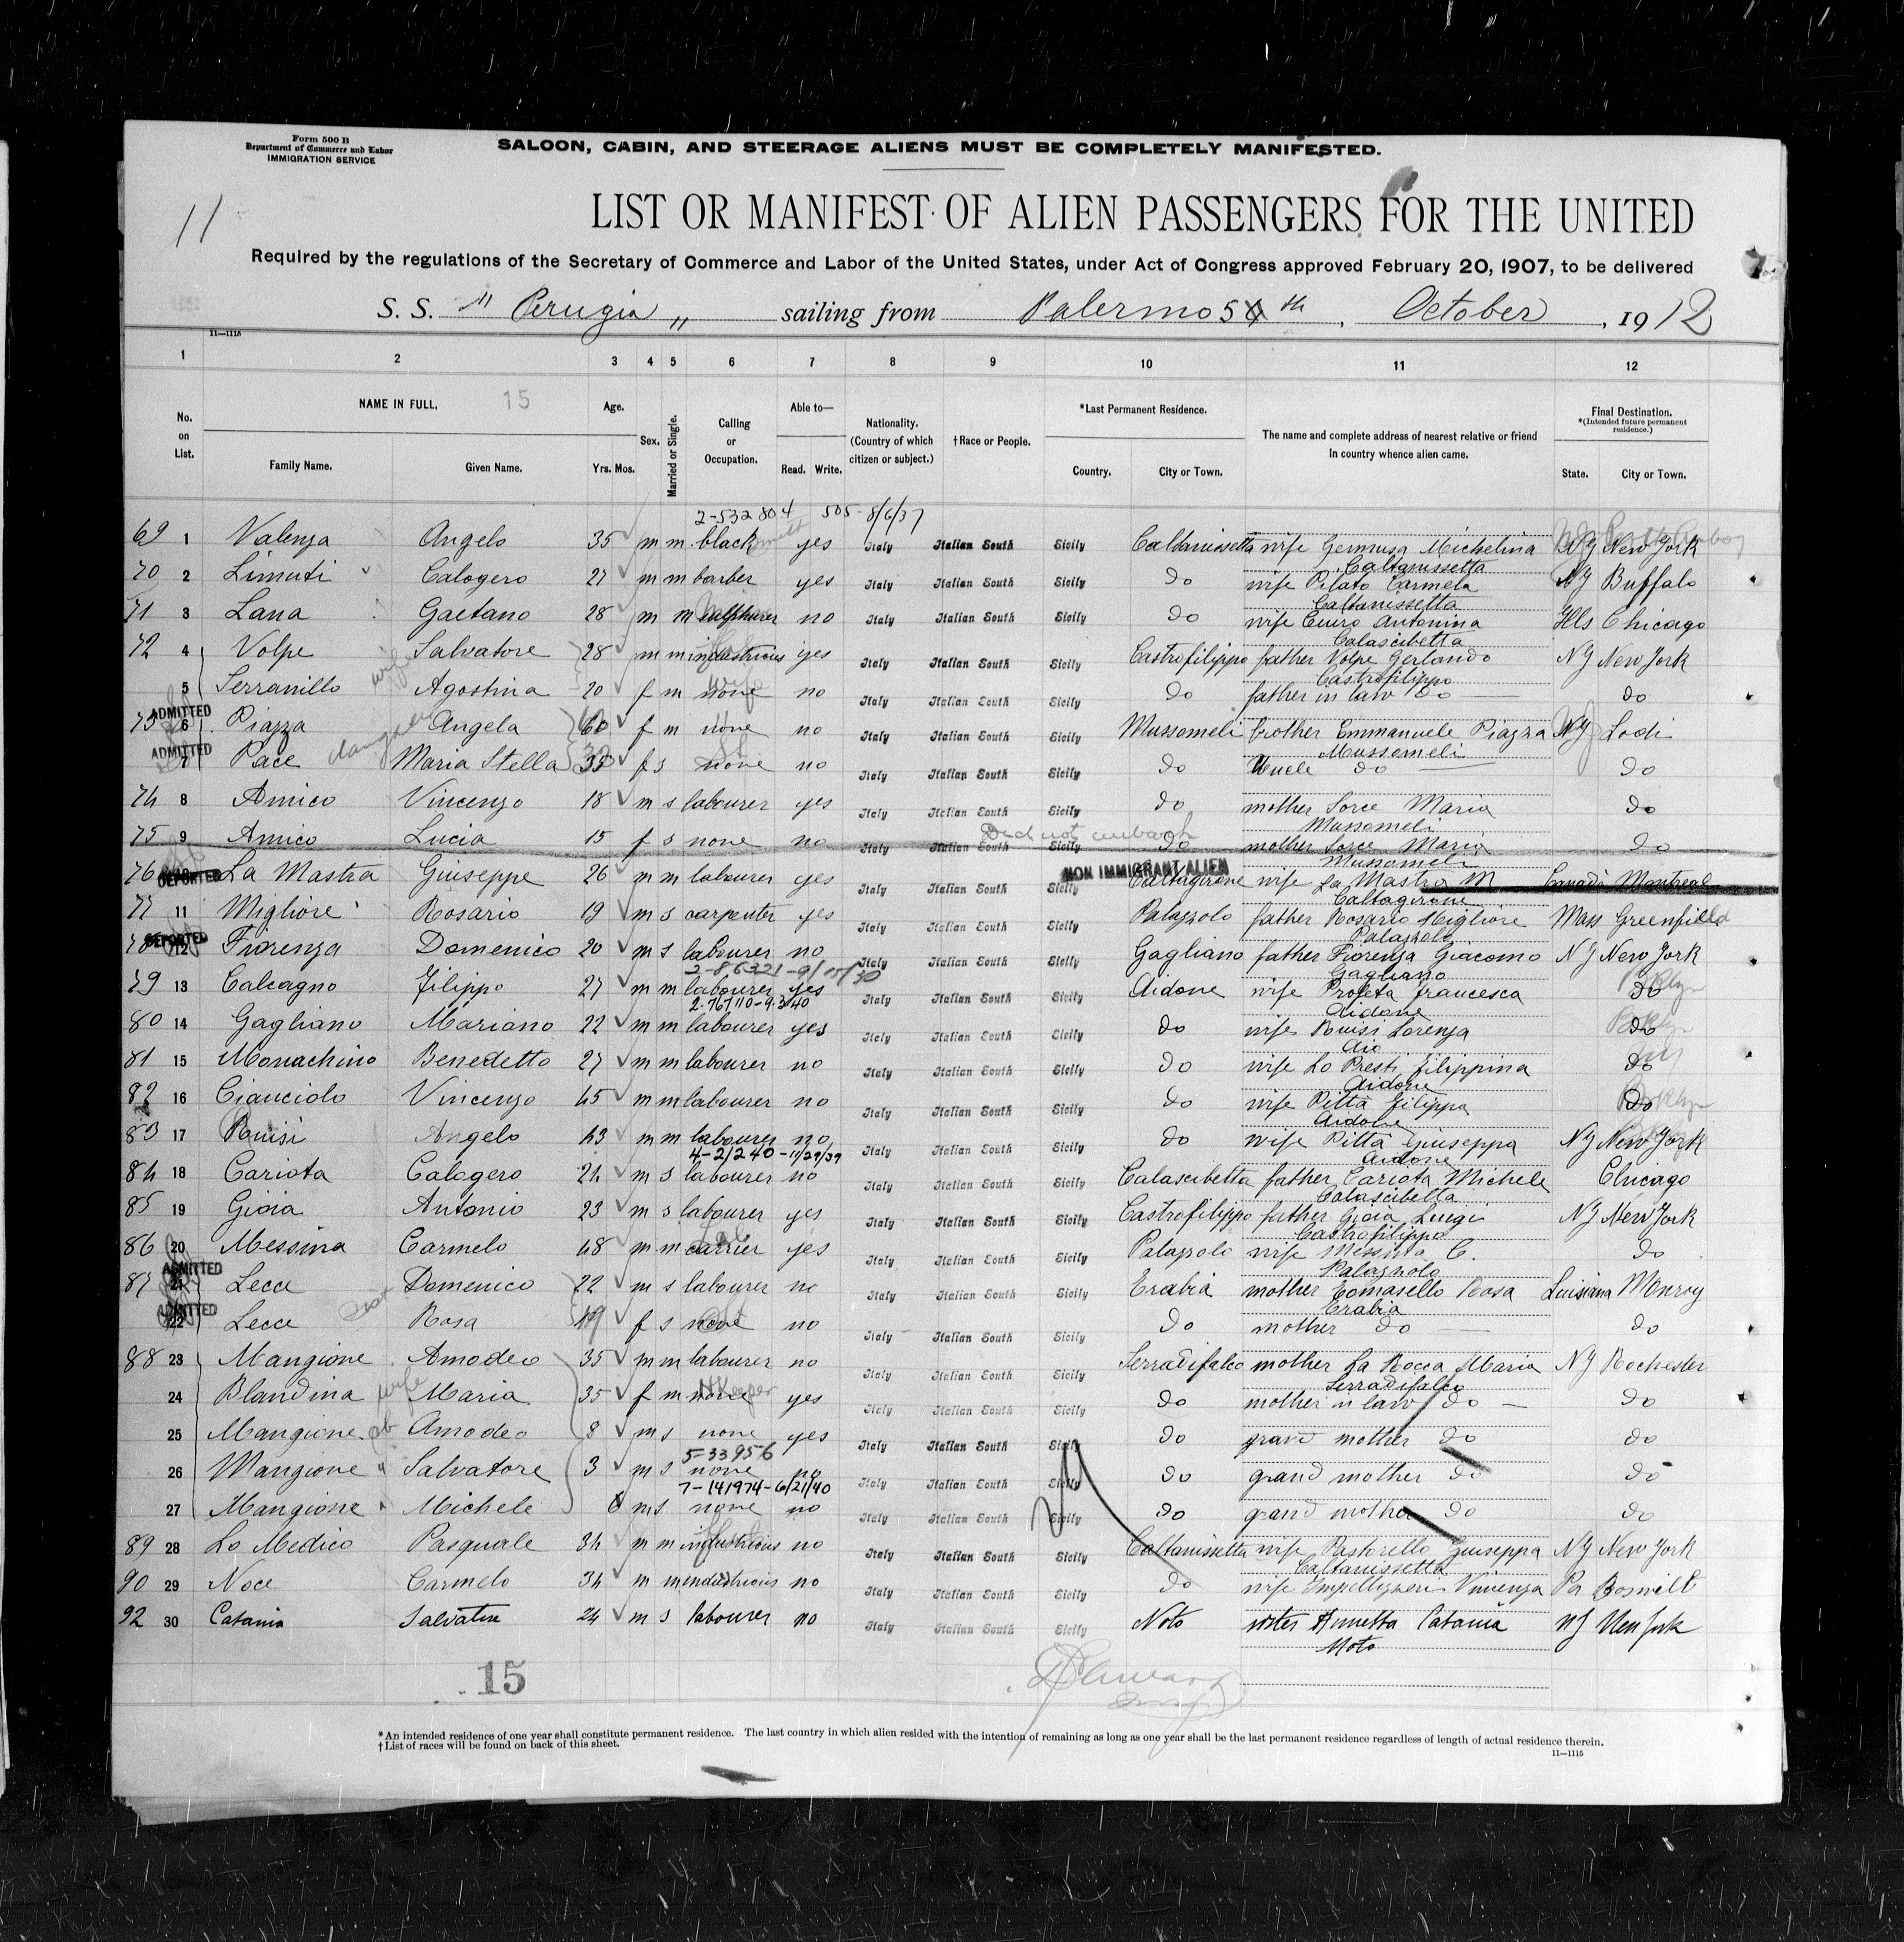 Form 500 B
Department of Commerce and Labor
IMMIGRATION SERVICE
SALOON, CABIN, AND STEERAGE ALIENS MUST BE COMPLETELY MANIFESTED.
11
LIST OR MANIFEST OF ALIEN PASSENGERS FOR THE UNITED
Required by the regulations of the Secretary of Commerce and Labor of the United States, under Act of Congress approved February 20, 1907, to be delivered
S. S. "Perugia" sailing from Palermo 5th, October, 1912
11—1115
1 2 3 4 5 6 7 8 9 10 11 12
No. on List. NAME IN FULL. 15 Family Name. Given Name. Age. Yrs. Mos. Sex. Married or Single. Calling or Occupation. Able to— Read. Write. Nationality. (Country of which citizen or subject.) †Race or People. *Last Permanent Residence. Country. City or Town. The name and complete address of nearest relative or friend in country whence alien came. Final Destination. *(Intended future permanent residence.) State. City or Town.
2-532804 505- 8/6/37
69 1 Valenza Angelo 35 m m black yes Italy Italian South Sicily Caltanissetta wife Germusa Michelina NY New York
Caltanissetta
70 2 Limuti Calogero 27 m m barber yes Italy Italian South Sicily do wife Pilato Carmela NY Buffalo
Caltanissetta
71 3 Lana Gaetano 28 m m sulphurer no Italy Italian South Sicily do wife Antonina Ills Chicago
Calascibetta
72 4 Volpe Salvatore 28 m m industrious yes Italy Italian South Sicily Castrofilippo father Volpe Gerlando NY New York
Castrofilippo
5 Serranillo wife Agostina 20 f m none no Italy Italian South Sicily do father in law do do
ADMITTED
73 6 Piazza Angela 60 f m none no Italy Italian South Sicily Mussomeli brother Emmanuele Piazza NJ Lodi
Mussomeli
ADMITTED
7 Pace daughter Maria Stella 33 f s none no Italy Italian South Sicily do Uncle do do
74 8 Amico Vincenzo 18 m s labourer yes Italy Italian South Sicily do mother Sorce Maria do
Mussomeli
75 9 Amico Lucia 15 f s none no Italy Italian South Sicily Did not embark do mother Sorce Maria do
Mussomeli
NON IMMIGRANT ALIEN
76 DEPORTED La Mastra Giuseppe 26 m m labourer yes Italy Italian South Sicily Caltagirone wife La Mastra M Canada Montreal
Caltagirone
77 11 Migliore Rosario 19 m s carpenter yes Italy Italian South Sicily Palazzolo father Rosario Migliore Mass Greenfield
Palazzolo
DEPORTED
78 12 Fiorenza Domenico 20 m s labourer no Italy Italian South Sicily Gagliano father Fiorenza Giacomo NY New York
Gagliano
2-86321-9/15/30
79 13 Calcagno Filippo 27 m m labourer yes Italy Italian South Sicily Aidone wife Profeta francesca do
Aidone
2-76710-9-3-40
80 14 Gagliano Mariano 22 m m labourer yes Italy Italian South Sicily do wife Ruisi Lorenza do
Aio
81 15 Monachino Benedetto 27 m m labourer no Italy Italian South Sicily do wife Lo Presti Filippina do
Aidone
82 16 Cianciolo Vincenzo 45 m m labourer no Italy Italian South Sicily do wife Pitta Filippa do
Aidone
83 17 Ruisi Angelo 43 m m labourer no Italy Italian South Sicily do wife Pitta Giuseppa NY New York
Aidone
4-21240-11/29/39
84 18 Cariota Calogero 24 m s labourer no Italy Italian South Sicily Calascibetta father Cariota Michele Chicago
Calascibetta
85 19 Gioia Antonio 23 m s labourer yes Italy Italian South Sicily Castrofilippo father Gioia Luigi NY New York
Castrofilippo
86 20 Messina Carmelo 48 m m carrier yes Italy Italian South Sicily Palazzolo wife Messina C. do
Palazzolo
ADMITTED
87 21 Lecce Domenico 22 m s labourer no Italy Italian South Sicily Erabia mother Tomasello Rosa Luisiana Monroy
Erabia
ADMITTED
22 Lecce Rosa 19 f s none no Italy Italian South Sicily do mother do do
88 23 Mangione Amodeo 35 m m labourer no Italy Italian South Sicily Serradifalco mother La Rocca Maria NY Rochester
Serradifalco
24 Blandina wife Maria 35 f m none HKeeper yes Italy Italian South Sicily do mother in law do do
25 Mangione Amodeo 8 m s none yes Italy Italian South Sicily do grand mother do do
5-33956
26 Mangione " Salvatore 3 m s none no Italy Italian South Sicily do grand mother do do
7-141974-6/21/40
27 Mangione " Michele m s none no Italy Italian South Sicily do grand mother do do
89 28 Lo Medico Pasquale 34 m m industrious no Italy Italian South Sicily Caltanissetta wife Pastorello Giuseppa NY New York
Caltanissetta
90 29 Noce Carmelo 34 m m industrious no Italy Italian South Sicily do wife Vincenza Pa
92 30 Catania Salvatore 24 m s labourer no Italy Italian South Sicily Noto sister Annetta Catania NY New York
Noto
15
*An intended residence of one year shall constitute permanent residence. The last country in which alien resided with the intention of remaining as long as one year shall be the last permanent residence regardless of length of actual residence therein.
†List of races will be found on back of this sheet.
11—1115